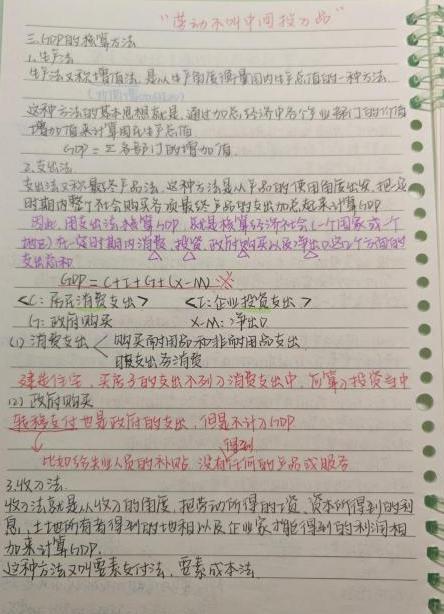 "劳动不叫中间投入品"
三.GDP的核算方法
1.生产法
生产法又称增值法,是从生产角度衡量国内生产总值的一种方法.
这种方法的基本思想就是,通过加总经济中各个产业部门的价值
增加值来计算国内生产总值.
GDP=Σ各部门的增加值.
2.支出法
支出法又称最终产品法,这种方法是从产品的使用角度出发,把一定
时期内整个社会购买各项最终产品的支出加总起来计算GDP
因此,用支出法核算GDP,就是核算经济社会(一个国家或一个
地区)在一定时期内消费,投资,政府购买以及净出口这几个方面的
支出总和
GDP=C+I+G+(X-M)※
<C:居民消费支出> <I:企业投资支出>
G:政府购买 X-M:净出口
(1)消费支出<购买耐用品和非耐用品支出
服务劳务消费
建造住宅,买房子的支出不列入消费支出中,而算入投资当中
(2)政府购买
转移支付也是政府的支出,但是不计入GDP
得到
比如给失业人员的补贴 没有任何的产品或服务
3.收入法
收入法就是从收入的角度,把劳动所得的工资,资本所得到的利
息,土地所有者得到的地租以及企业家才能得到的利润相
加来计算GDP.
这种方法又叫要素支付法,要素成本法